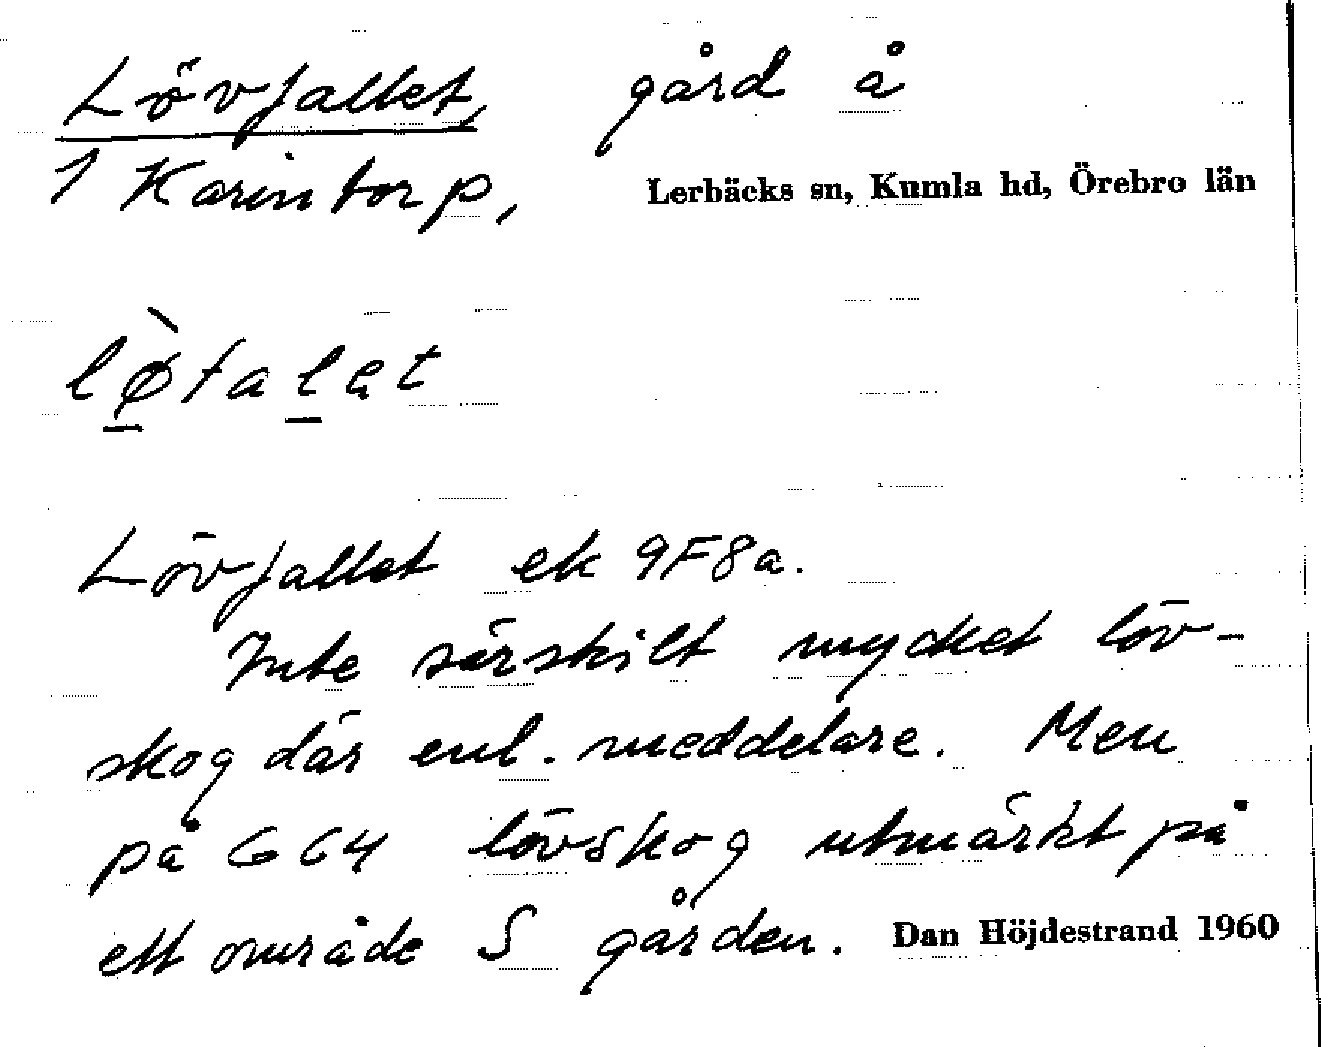 Lövfallet, gård å
1 Karintorp, Lerbäcks sn, Kumla hd, Örebro län
lø̀falet
Lövfallet ek 9F8a.
Inte särskilt mycket löv-
skog där enl. meddelare. Men
på G64 lövskog utmärkt på
ett område S gården. Dan Höjdestrand 1960